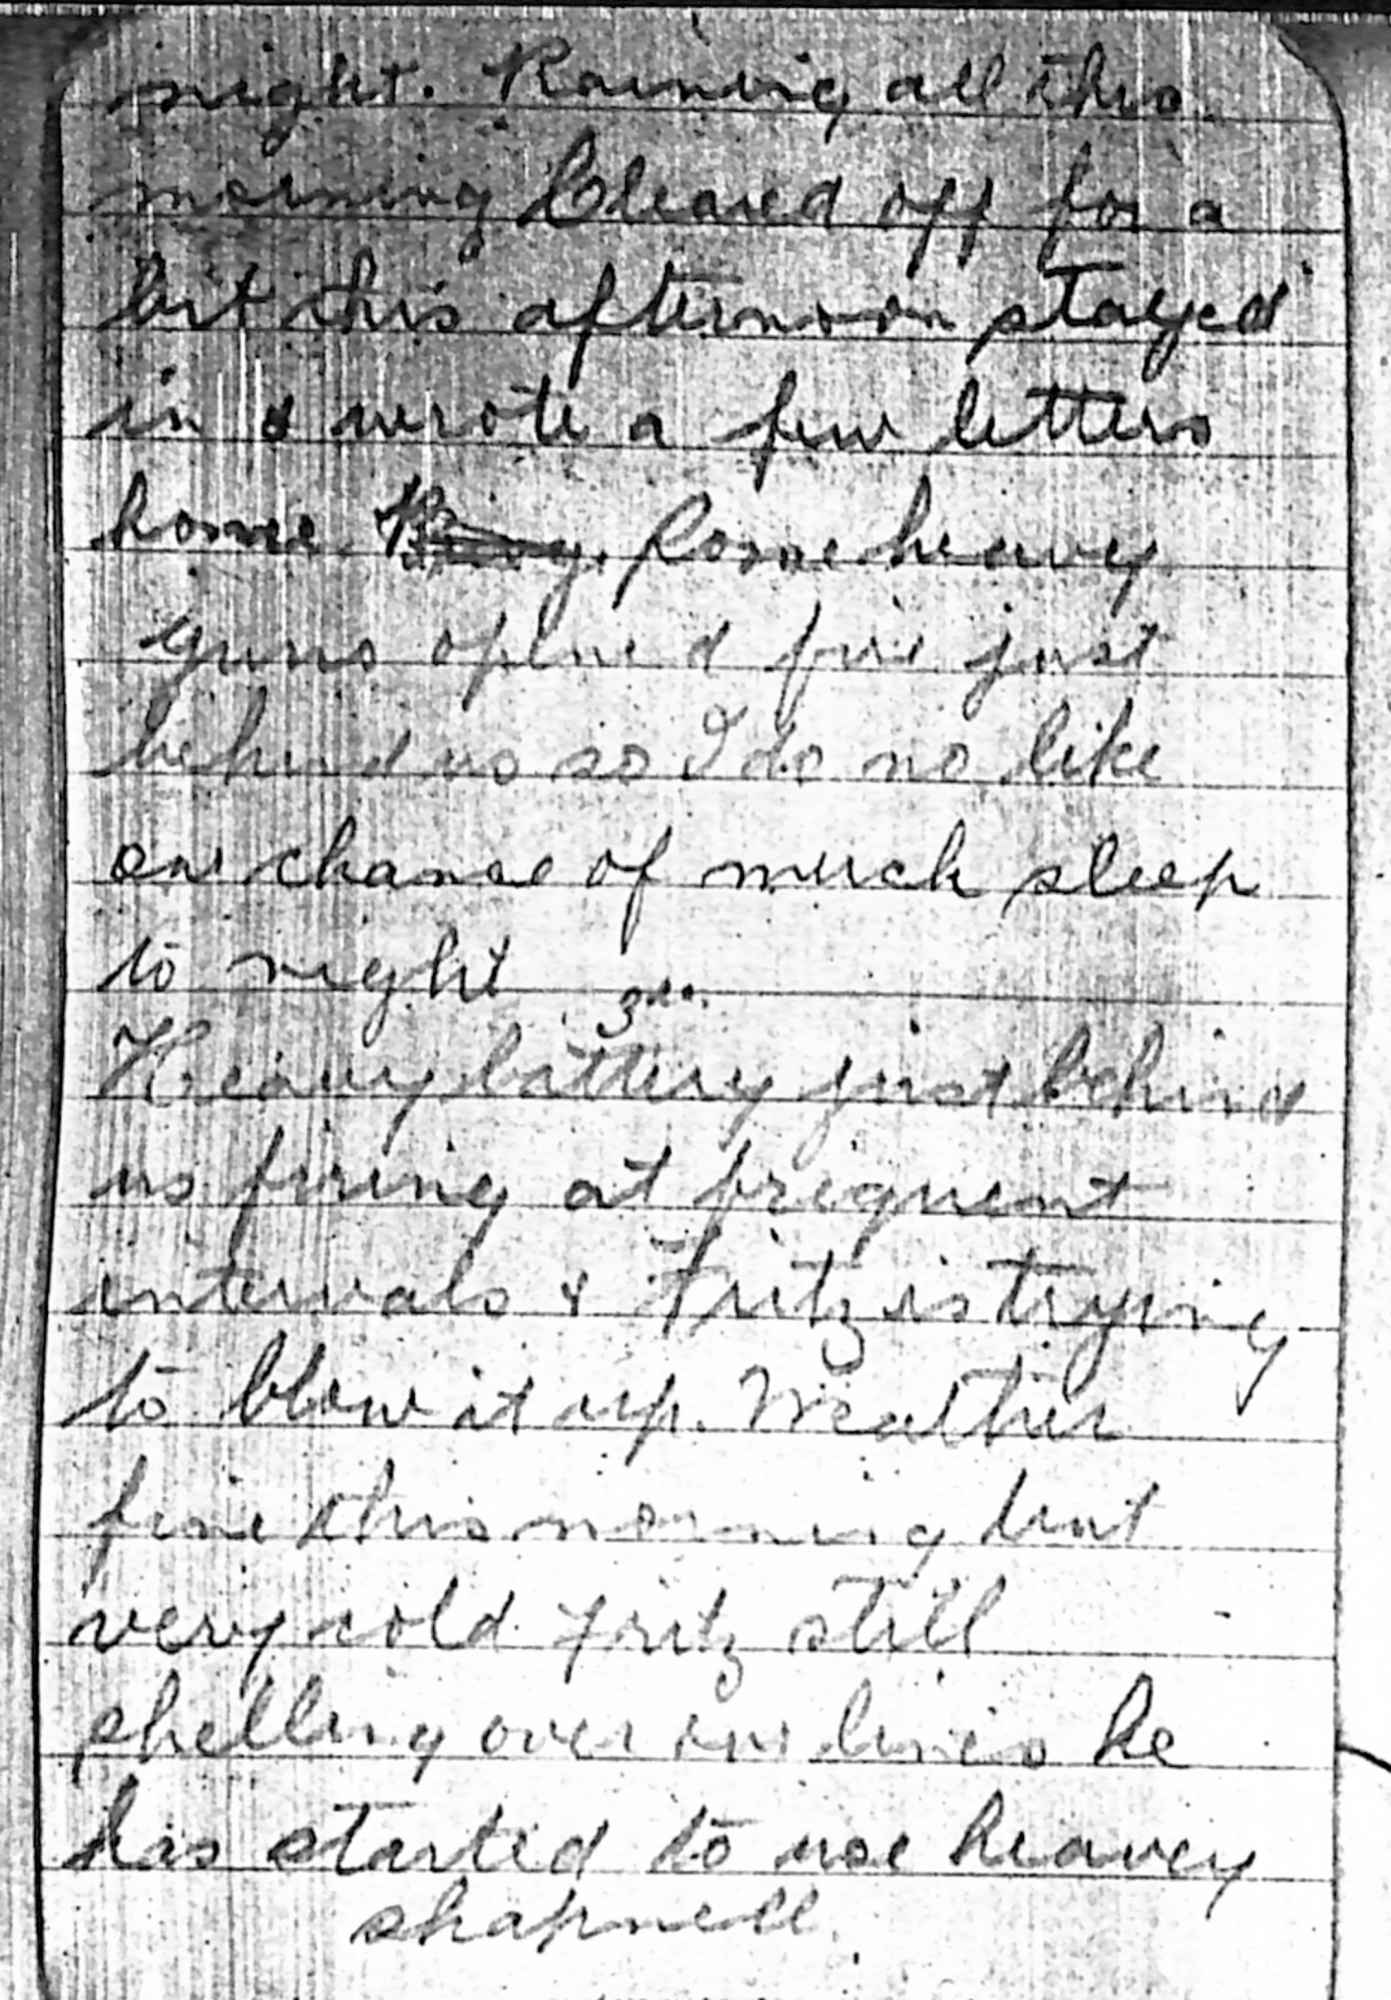 night. Raining all this
morning Cleared off for a
bit this afternoon stayed
in & wrote a few letters
home. Some heavy
guns opened fire just
behind us so I do no like
our chance of much sleep
to night
3rd.
Heavy battery just behind
us firing at frequent
intervals & Fritz is trying
to blow it up. Weather
fine this morning but
very cold. Fritz still
shelling over our lines he
has started to use heavey
shapnell.